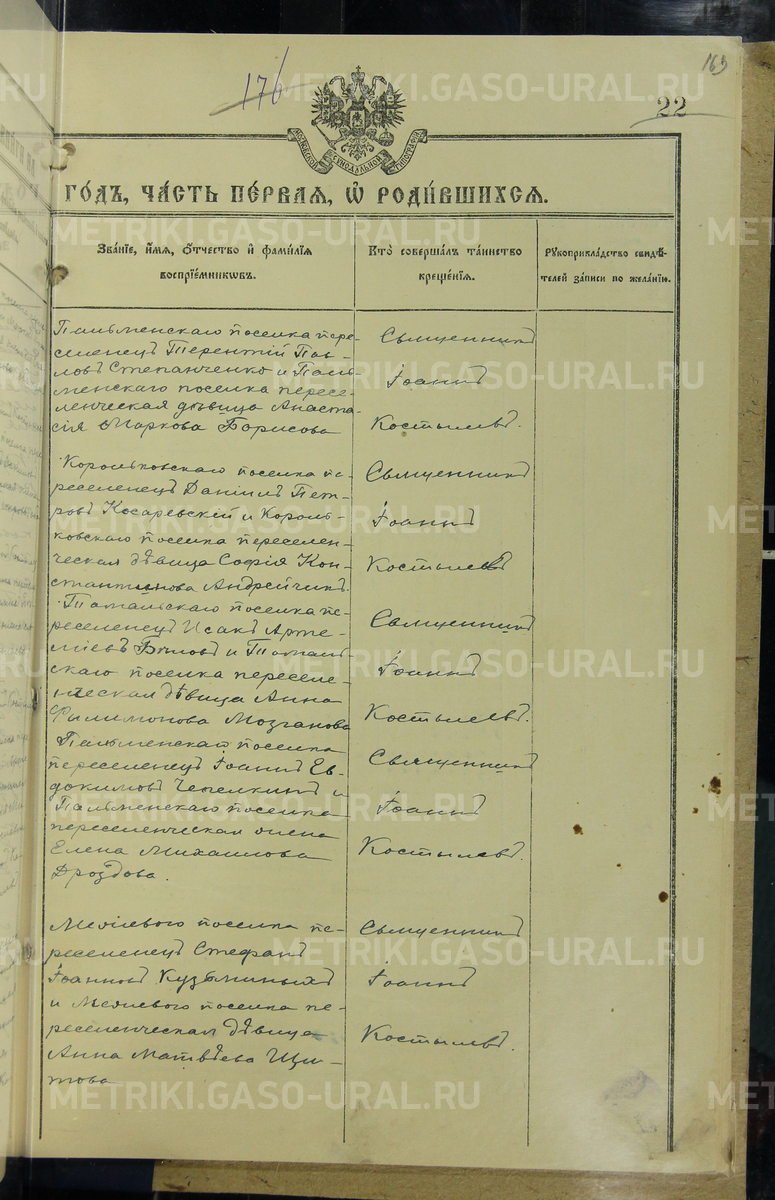 165
176
22
МОСКОВСКОЙ СѴНОДАЛЬНОЙ ТИПОГРАФІИ
ГОДЪ, ЧАСТЬ ПЕРВАЯ, Ѡ РОДИВШИХСЯ.
Званіе, имя, отчество и фамилія воспріемниковъ.
Кто совершалъ таинство крещенія.
Рукоприкладство свидѣтелей записи по желанію.
поселка пере-
селенецъ Терентій Пав-
ловъ Степанченко и
менскаго поселка пересе-
ленческая дѣвица Анаста-
сія Маркова Борисова
Священникъ
Іоаннъ
Костылевъ.
Корольковскаго поселка пе-
реселенецъ Даніилъ Пет-
ровъ Косаревскій и Король-
ковскаго поселка переселен-
ческая дѣвица Софія Кон-
стантинова Андрейчикъ.
Священникъ
Іоаннъ
Костылевъ
поселка пе-
реселенецъ Исакъ Арте-
міевъ Бѣловъ и
скаго поселка переселе-
нческая дѣвица Анна
Филимонова Мозганова
Священникъ
Іоаннъ
Костылевъ.
поселка
переселенецъ Іоаннъ Ев-
докимовъ Чепелкинъ и
поселка
переселенческая жена
Елена Михаилова
Дроздова.
Священникъ
Іоаннъ
Костылевъ.
поселка пе-
реселенецъ Стефанъ
Іоанновъ Кузьминыхъ
и поселка пе-
реселенческая дѣвица
Анна Матвѣева Щи-
това
Священникъ
Іоаннъ
Костылевъ.
METRIKI.GASO-URAL.RU